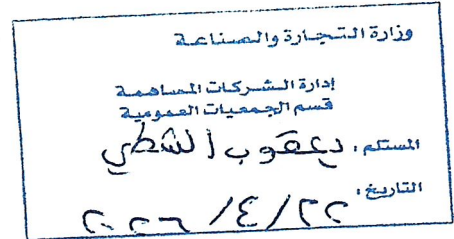 وزارة التجارة والصناعة
إدارة الشركات المساهمة
قسم الجمعيات العمومية
المستلم: يعقوب الشطي
التاريخ: ٢٢/٤/٢٠٢٦